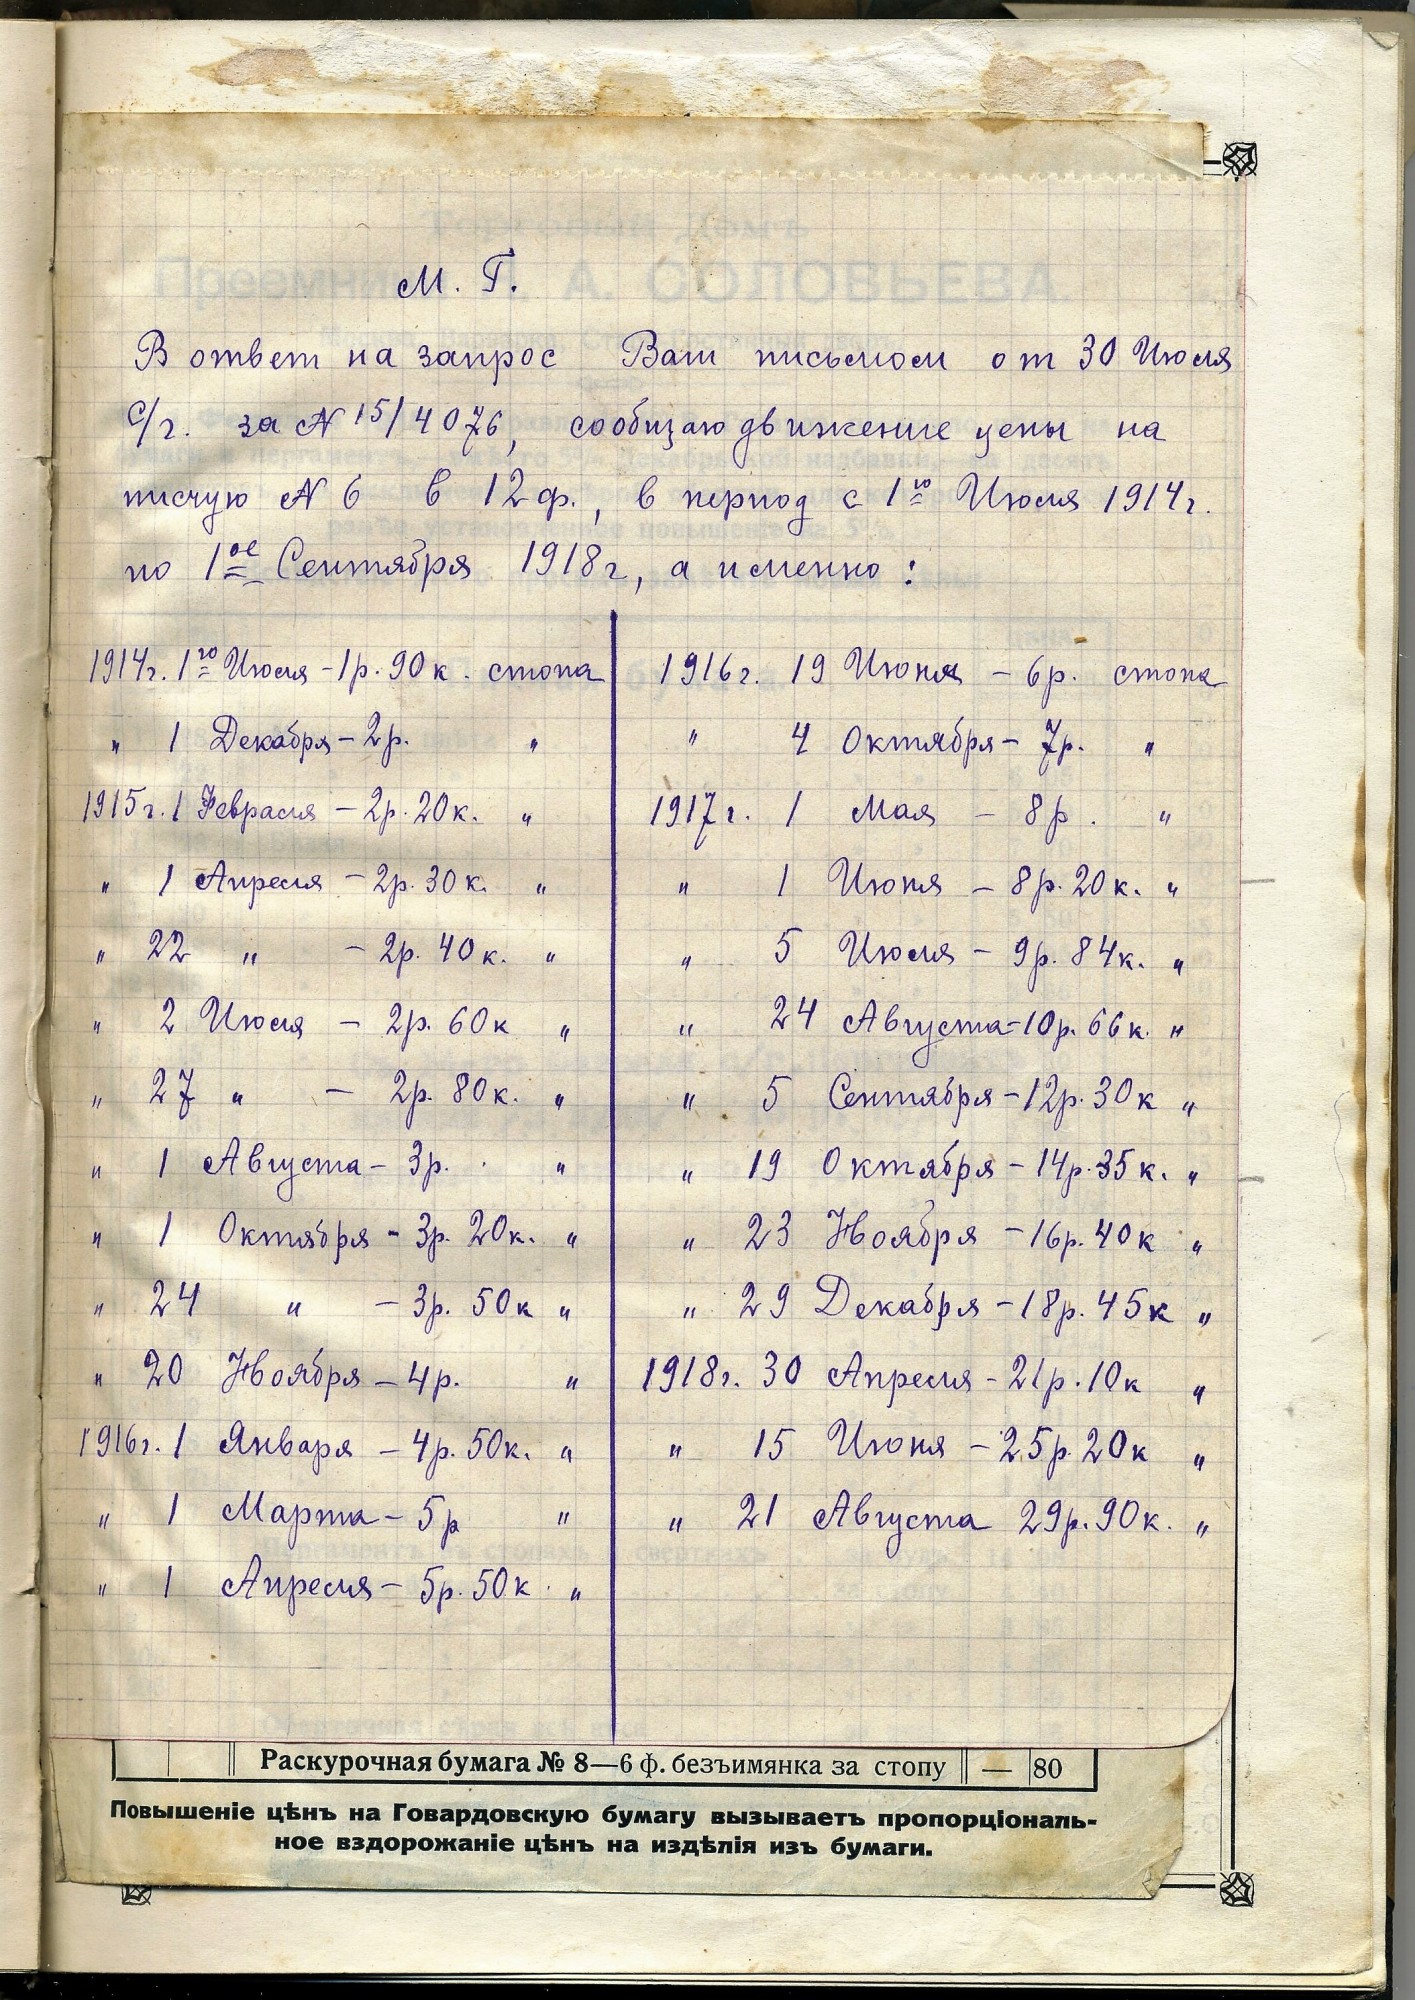 М. Г.
В ответ на запрос Ваш письмом от 30 Июля
с/г. за № 15/4076, сообщаю движение цены на
писчую № 6 в 12 ф., в период с 1го Июля 1914 г.
по 1ое Сентября 1918 г, а именно:
1914 г. 1го Июля – 1 р. 90 к. стопа
" 1 Декабря – 2 р. "
1915 г. 1 Февраля – 2 р. 20 к. "
" 1 Апреля – 2 р. 30 к. "
" 22 " – 2 р. 40 к. "
" 2 Июля – 2 р. 60 к "
" 27 " – 2 р. 80 к. "
" 1 Августа – 3 р. "
" 1 Октября – 3 р. 20 к. "
" 24 " – 3 р. 50 к "
" 20 Ноября – 4 р. "
1916 г. 1 Января – 4 р. 50 к. "
" 1 Марта – 5 р "
" 1 Апреля – 5 р. 50 к. "
1916 г. 19 Июня – 6 р. стопа
" 4 Октября – 7 р. "
1917 г. 1 Мая – 8 р. "
" 1 Июня – 8 р. 20 к. "
" 5 Июля – 9 р. 84 к. "
" 24 Августа – 10 р. 66 к. "
" 5 Сентября – 12 р. 30 к "
" 19 Октября – 14 р. 35 к. "
" 23 Ноября – 16 р. 40 к "
" 29 Декабря – 18 р. 45 к "
1918 г. 30 Апреля – 21 р. 10 к "
" 15 Июня – 25 р. 20 к "
" 21 Августа 29 р. 90 к. "
Раскурочная бумага № 8—6 ф. безъимянка за стопу — 80
Повышеніе цѣнъ на Говардовскую бумагу вызываетъ пропорціональ-
ное вздорожаніе цѣнъ на издѣлія изъ бумаги.